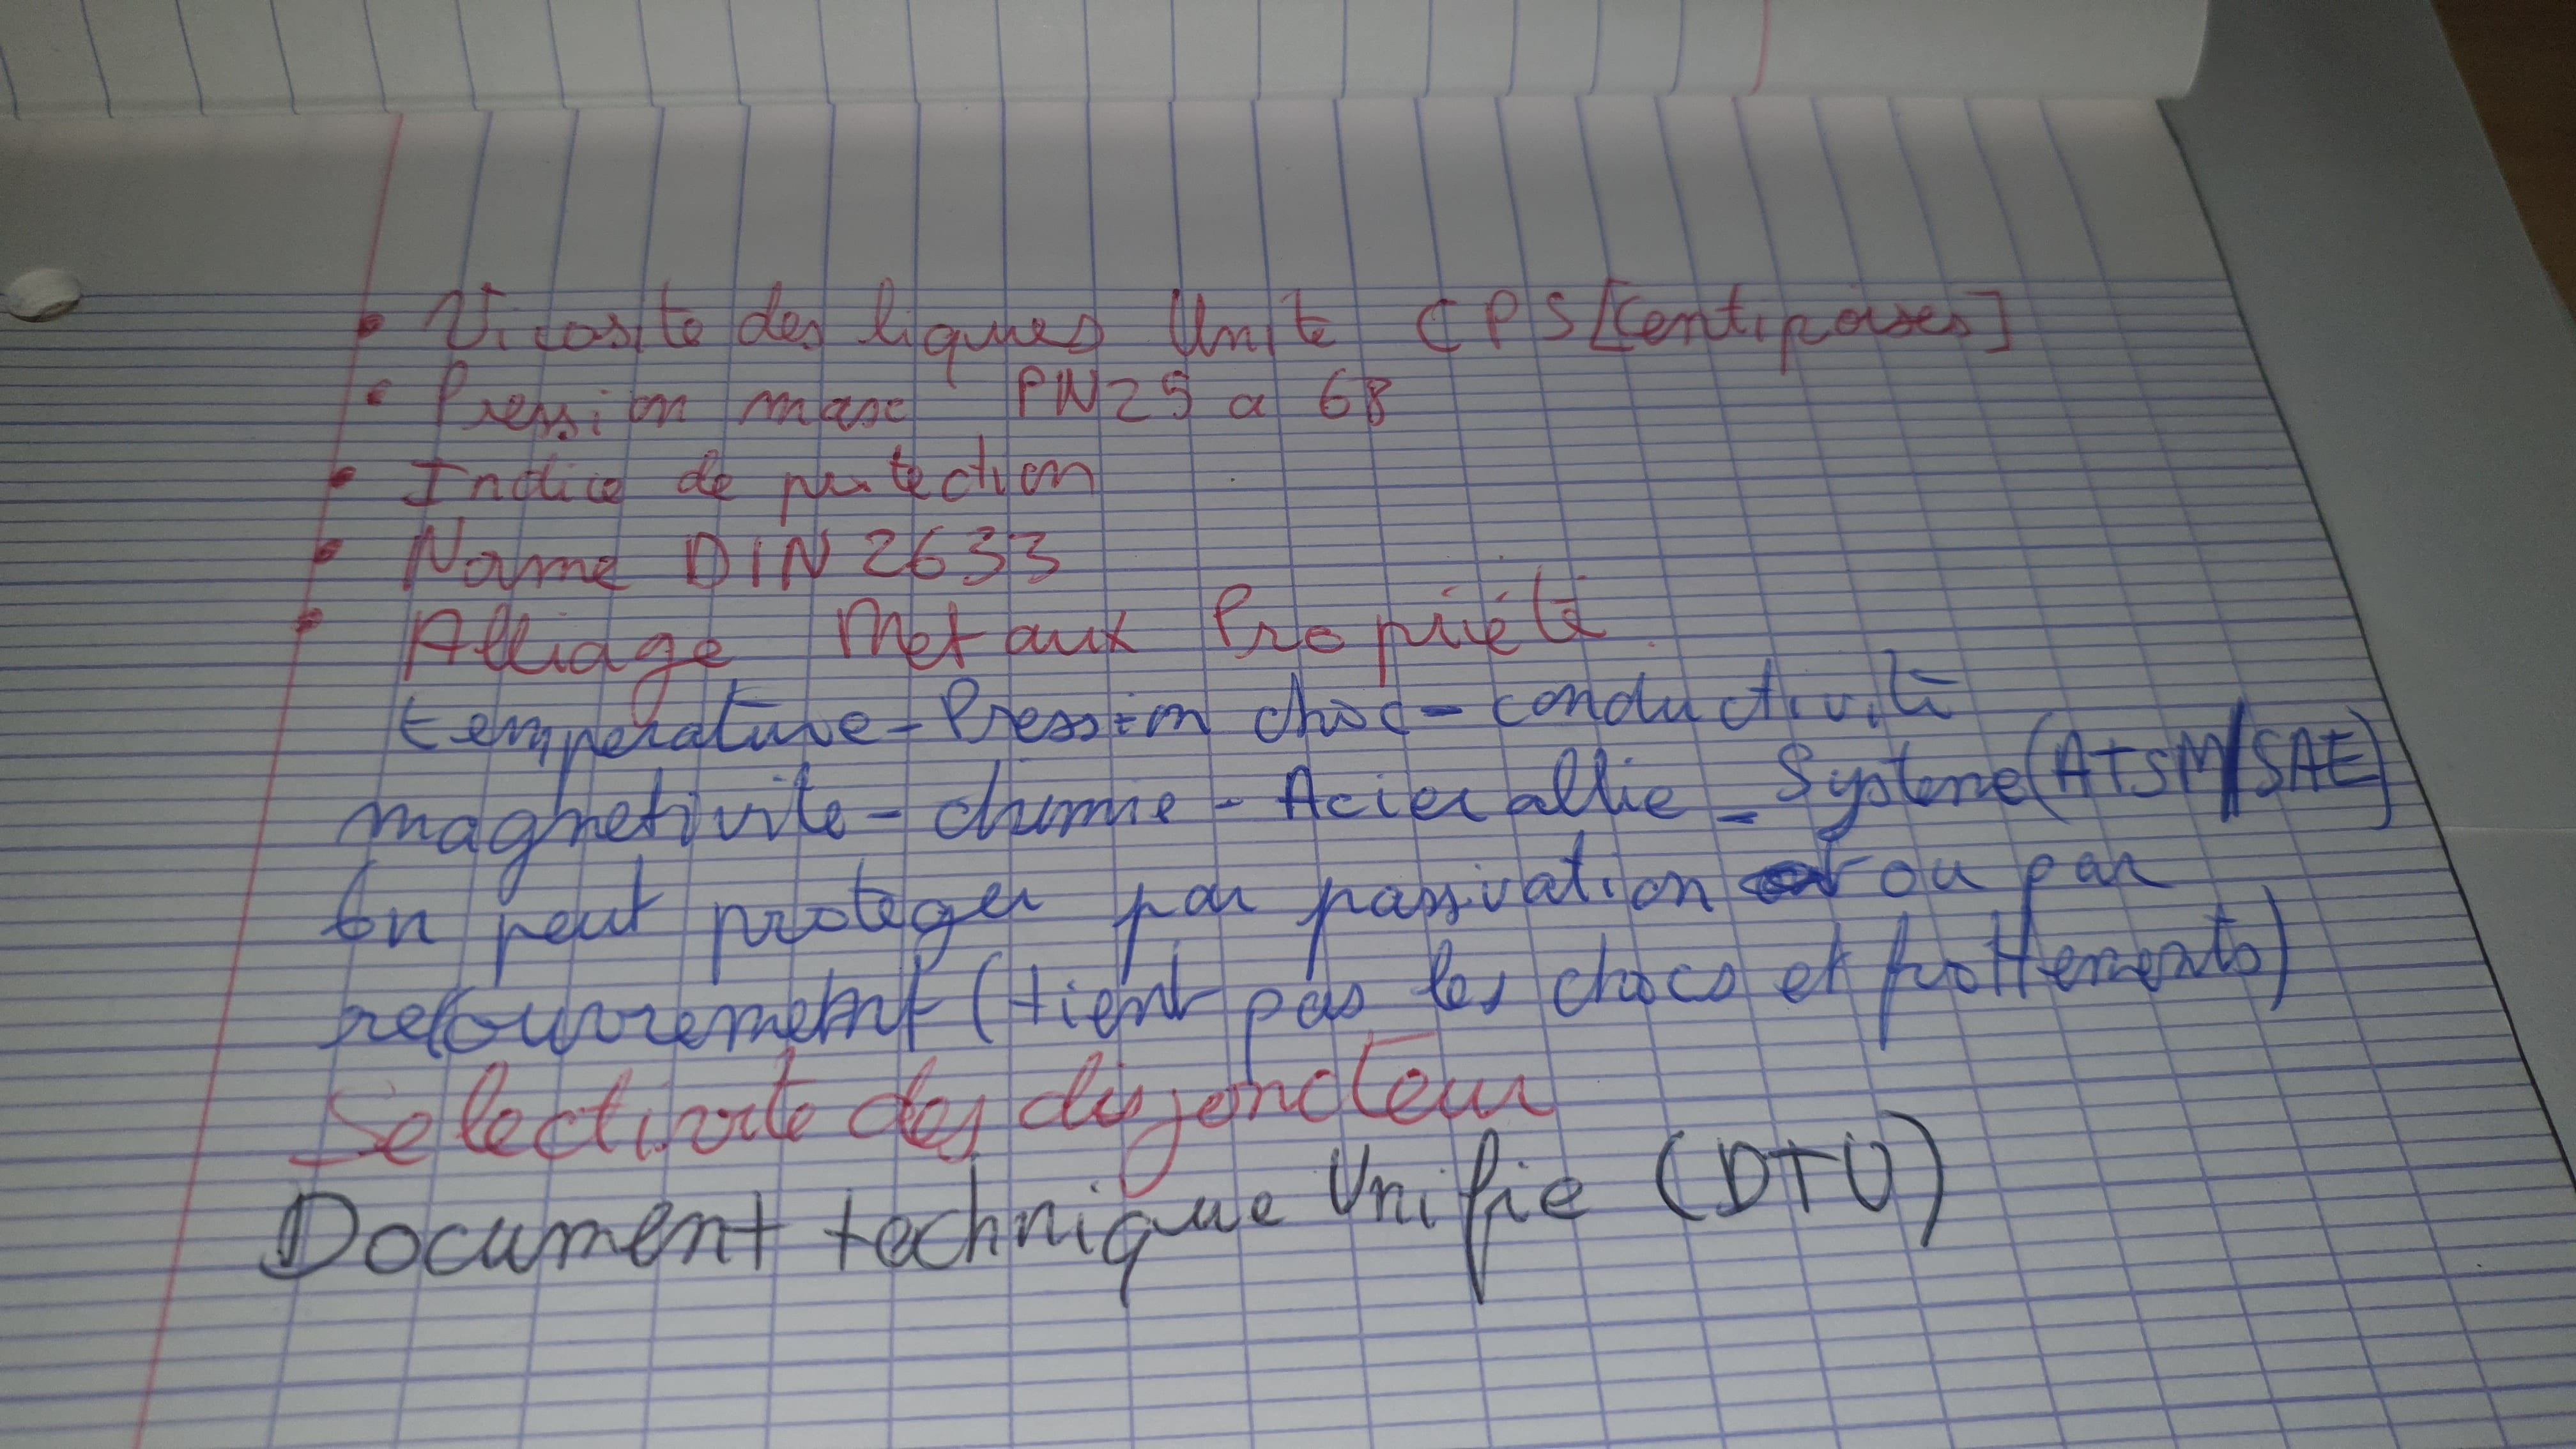 • Vicosite des liques Unite CPS [Centipoises]
• Pression maxe PN25 a 68
• Indice de protection
• Norme DIN 2633
• Alliage Metaux Propriété
temperature - Pression choc - conductivité
magnetivite - chimie - Acier allie - Systeme (ATSM/SAE)
On peut proteger par passivation ou par
recouvrement (tient pas les chocs et frottements)
Selectivite des disjoncteur
Document technique Unifie (DTU)